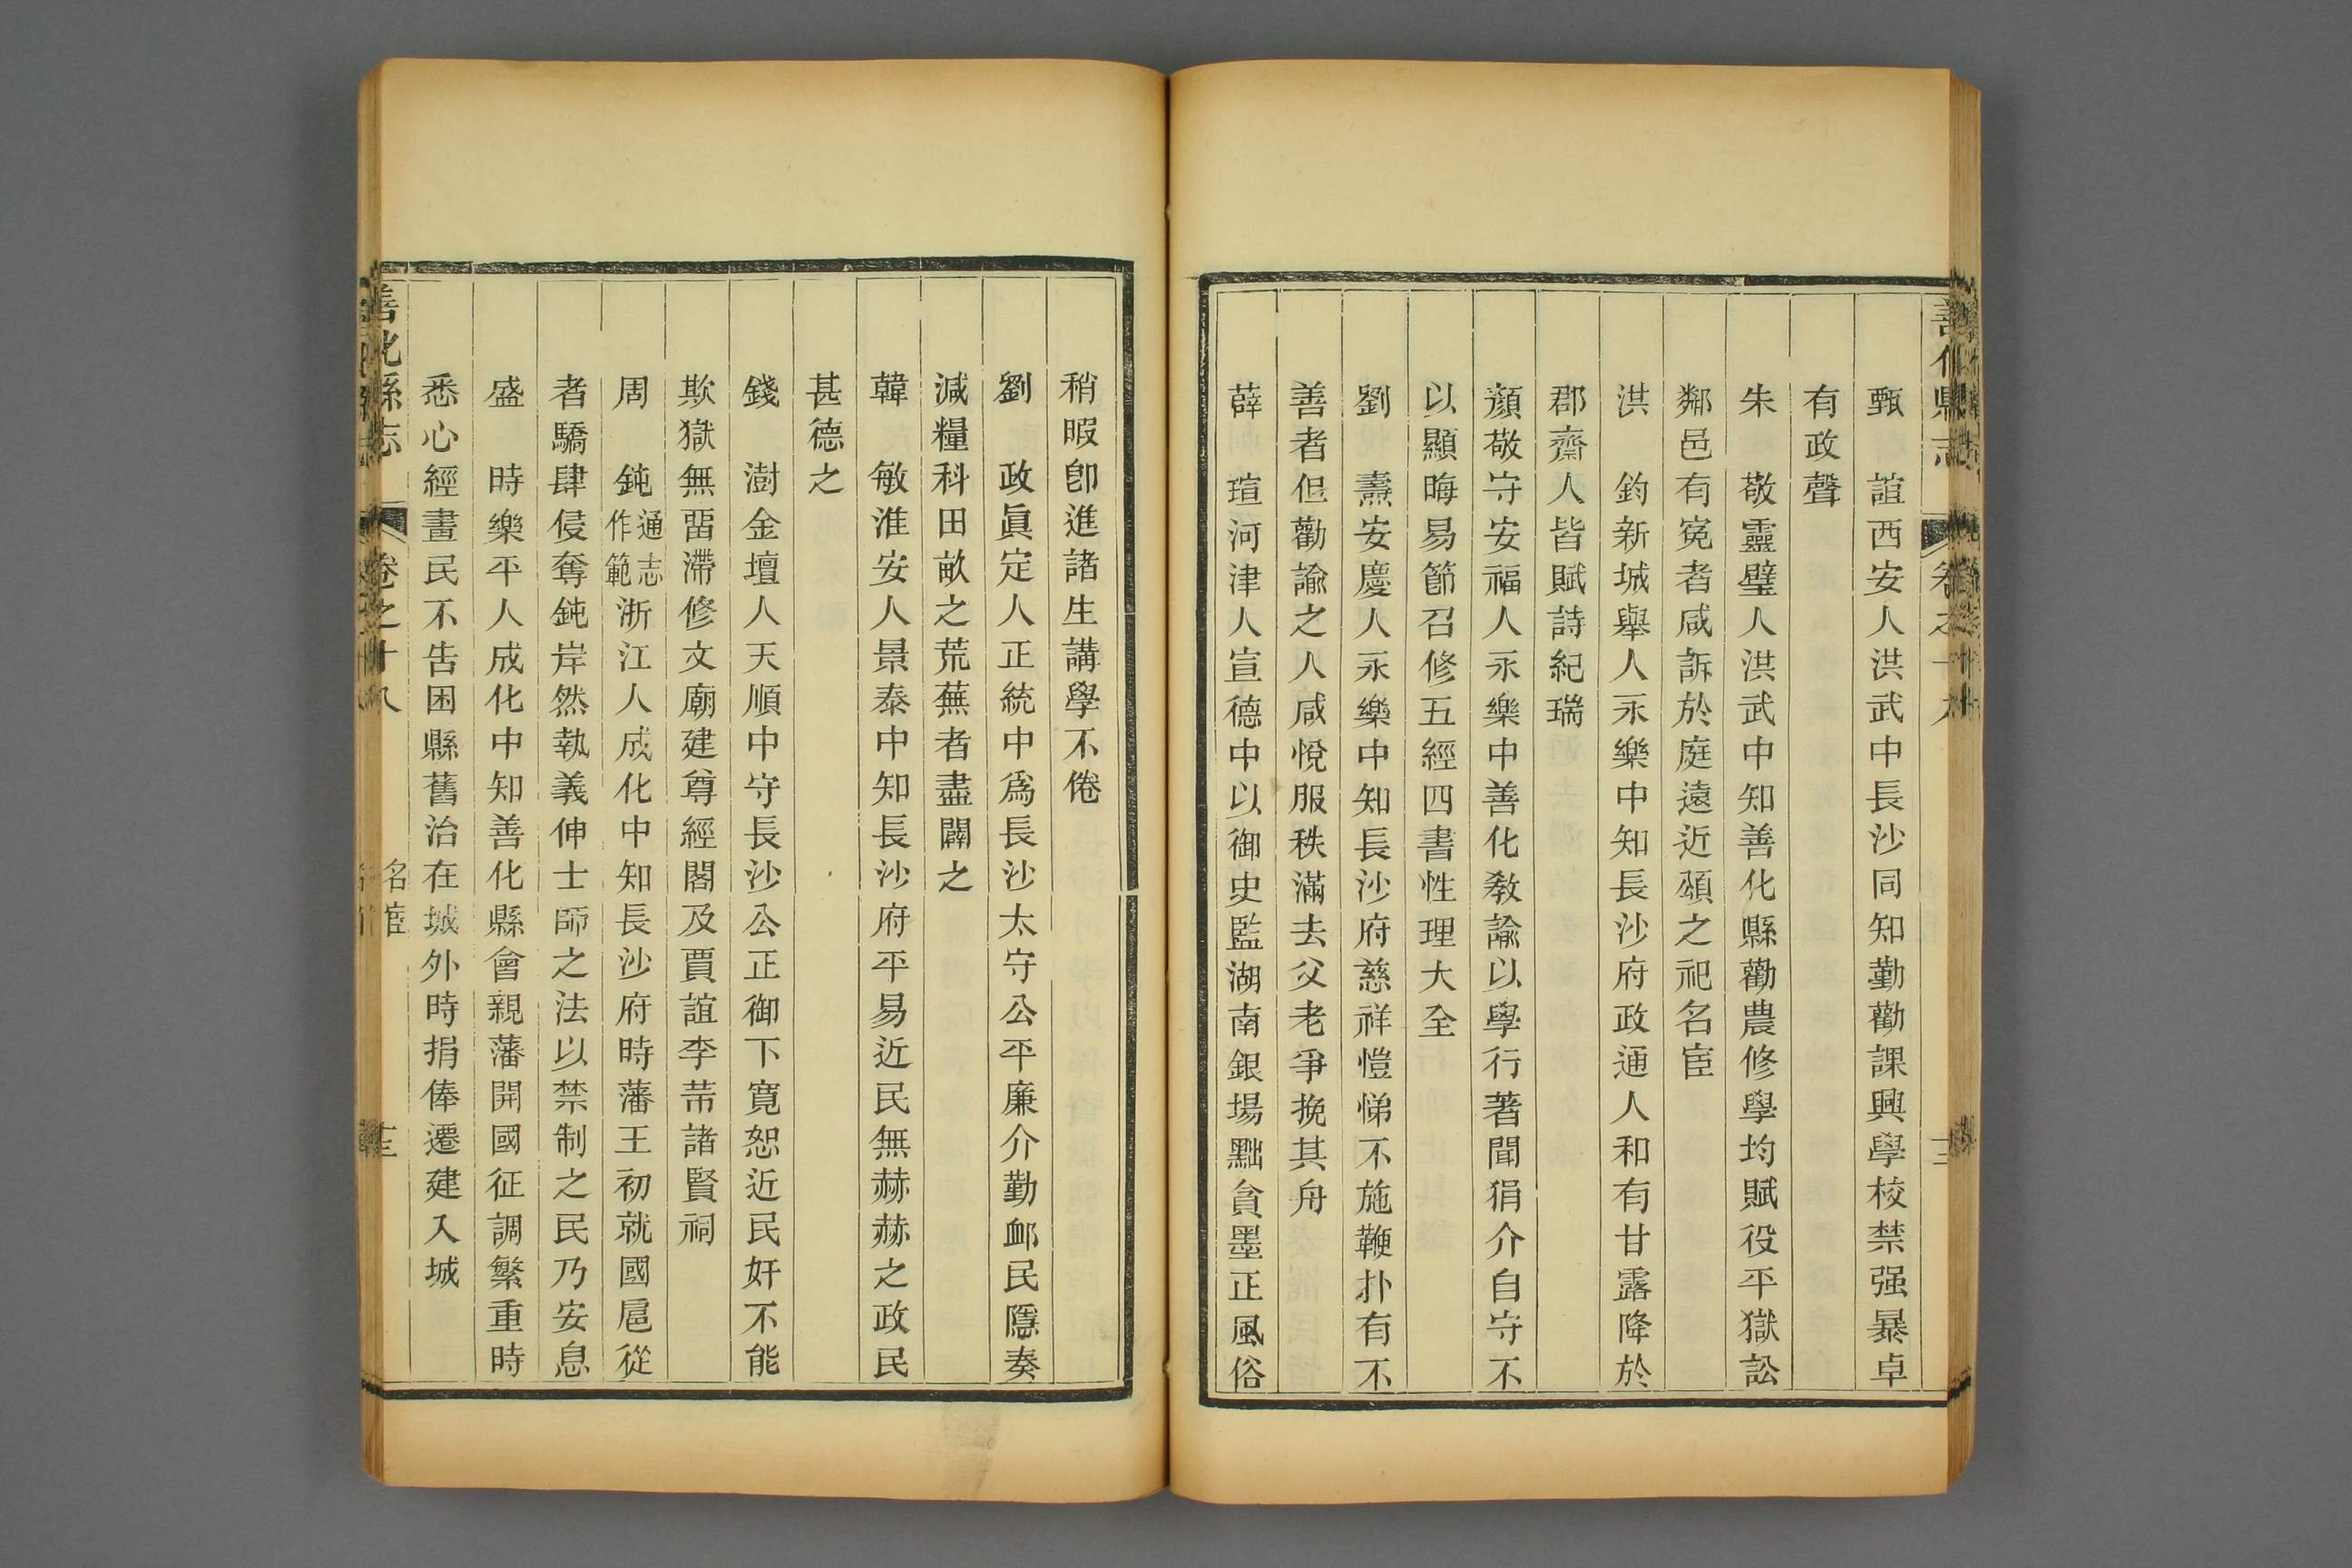 甄　誼西安人洪武中長沙同知勤勸課興學校禁强暴卓
有政聲
朱　敬靈璧人洪武中知善化縣勸農修學均賦役平獄訟
鄰邑有寃者咸訴於庭遠近頌之祀名宦
洪　鈞新城舉人永樂中知長沙府政通人和有甘露降於
郡齋人皆賦詩紀瑞
顏敬守安福人永樂中善化敎諭以學行著聞狷介自守不
以顯晦易節召修五經四書性理大全
劉　燾安慶人永樂中知長沙府慈祥愷悌不施鞭扑有不
善者但勸諭之人咸悅服秩滿去父老爭挽其舟
薛　瑄河津人宣德中以御史監湖南銀場黜貪墨正風俗
稍暇卽進諸生講學不倦
劉　政眞定人正統中爲長沙太守公平廉介勤衈民隱奏
減糧科田畝之荒蕪者盡闢之
韓　敏淮安人景泰中知長沙府平易近民無赫赫之政民
甚德之
錢　澍金壇人天順中守長沙公正御下寬恕近民奸不能
欺獄無畱滯修文廟建尊經閣及賈誼李芾諸賢祠
周　鈍通志作範浙江人成化中知長沙府時藩王初就國扈從
者驕肆侵奪鈍岸然執義伸士師之法以禁制之民乃安息
盛　時樂平人成化中知善化縣會親藩開國征調繁重時
悉心經畫民不吿困縣舊治在城外時捐俸遷建入城
善化縣志　卷之十八　名宦　十三